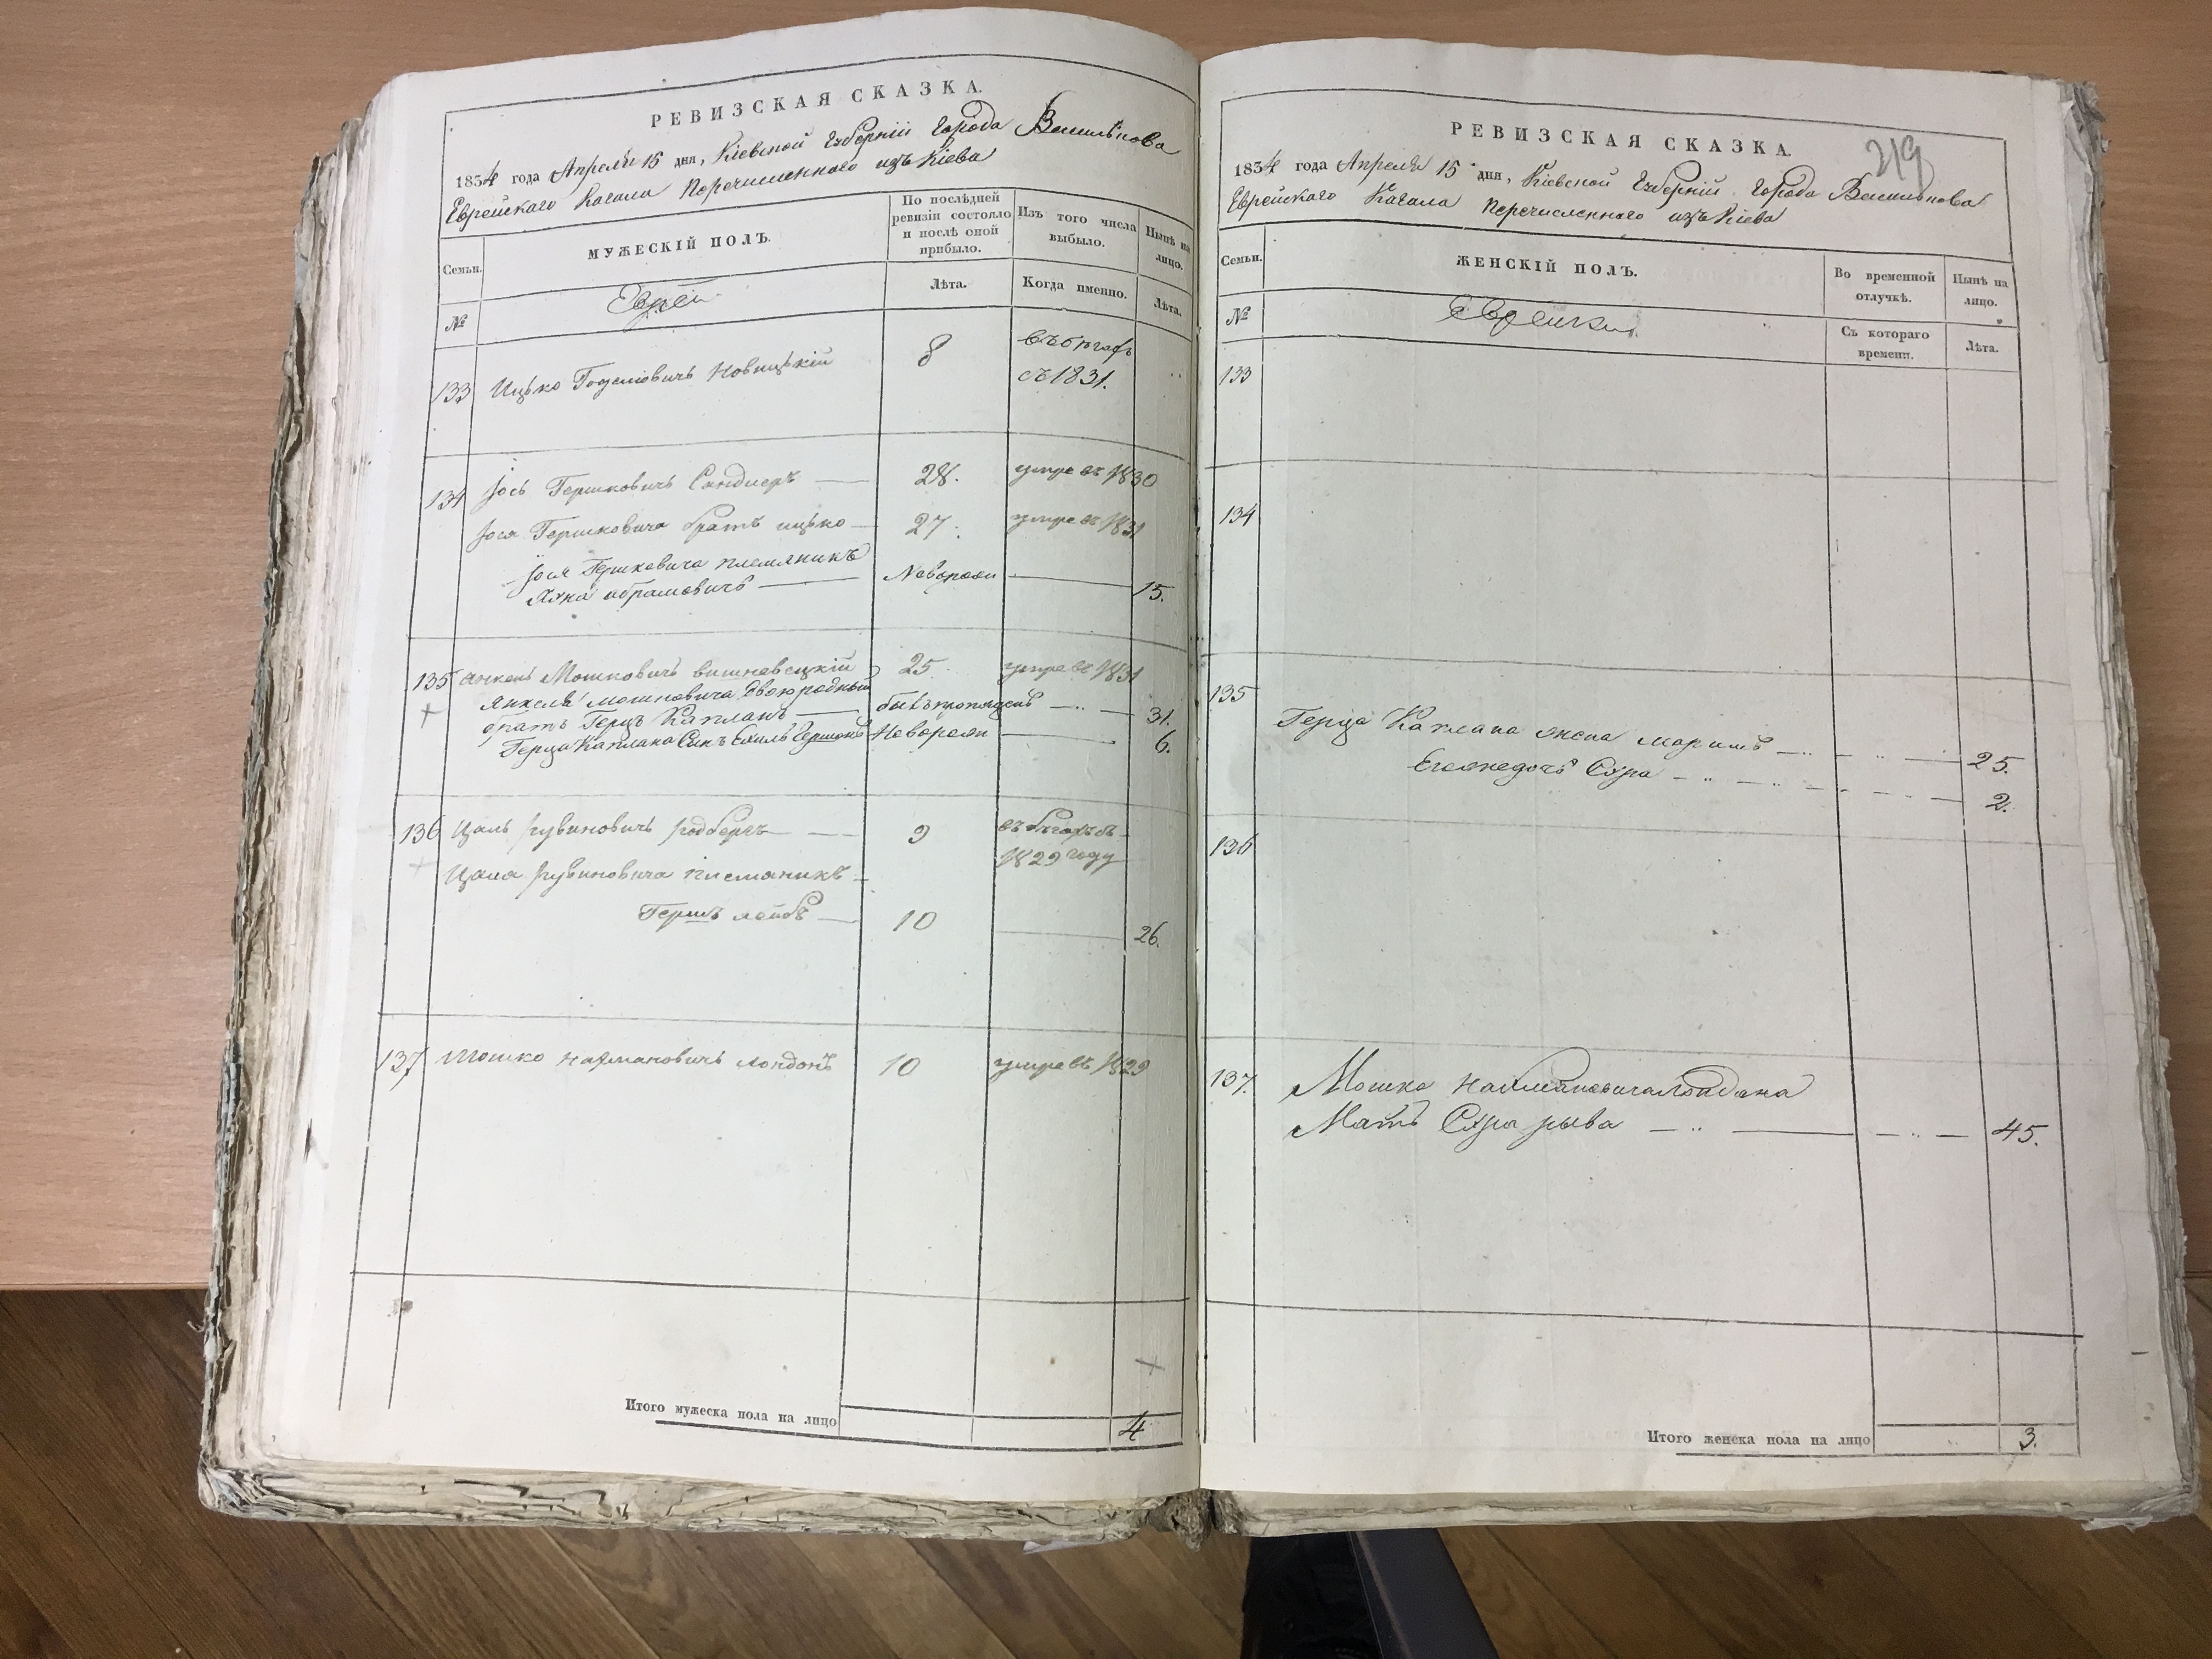 РЕВИЗСКАЯ СКАЗКА.
1834 года Апреля 15 дня, Кіевской Губерніи Города Василькова
Еврейскаго Кагала Перечисленнаго изъ Кіева
Семьи.
МУЖЕСКІЙ ПОЛЪ.
По послѣдней ревизіи состояло и послѣ оной прибыло.
Изъ того числа выбыло.
Нынѣ на лицо.
№
Евреи
Лѣта.
Когда именно.
Лѣта.
133 Ицько Новицькій 8 въ бѣгахъ
съ 1831.
134 Іось Гершковичъ Сандлеръ 28. умре въ 1830
Іося Гершковича братъ ицько 27. умре въ 1831
Іося Гершковича племяникъ
абрамовичъ Невороди 15.
135 Янкель Мошковичъ вишневецкій 25. умре въ 1831
Янкеля мошковича двоюродный
братъ Герцъ Капланъ бывъ пропущенъ 31.
Герца Каплана Сынъ Невороди 6.
136 Цаль рувиновичъ родбергъ 9 въ бѣгахъ съ
1829 году
Цаля рувиновича племаникъ
Гершъ лейбъ 10 26.
137 Мошко нахмановичъ лондонъ 10 умре въ 1829
Итого мужеска пола на лицо 4
219
РЕВИЗСКАЯ СКАЗКА.
1834 года Апреля 15 дня, Кіевской Губерніи Города Василькова
Еврейскаго Кагала Перечисленнаго изъ Кіева
Семьи.
ЖЕНСКІЙ ПОЛЪ.
Во временной отлучкѣ.
Нынѣ на лицо.
№
Еврейки
Съ котораго времени.
Лѣта.
133
134
135
Герца Каплана жена маримъ 25.
Егоже дочь Сура 2.
136
137. Мошка нахмановича лондона
Мать Сура рыва 45.
Итого женска пола на лицо 3.